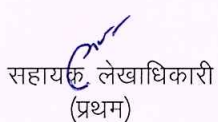 सहायक लेखाधिकारी
(प्रथम)